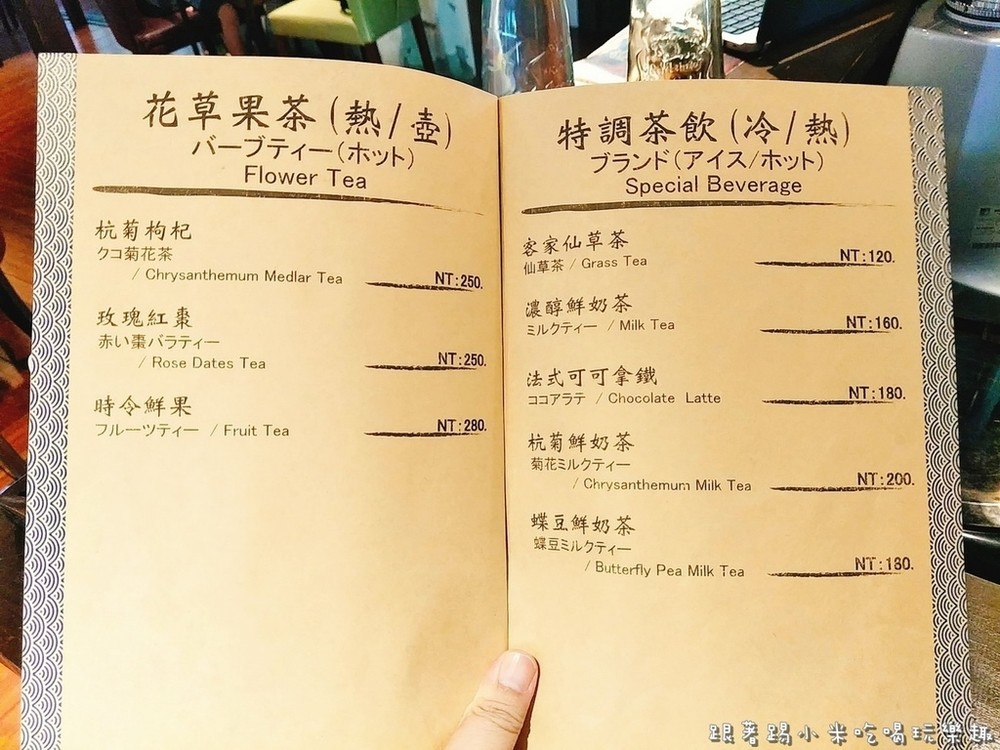 花草果茶(熱/壺)
バーブティー(ホット)
Flower Tea
杭菊枸杞
クコ菊花茶
/ Chrysanthemum Medlar Tea NT:250.
玫瑰紅棗
赤い棗バラティー
/ Rose Dates Tea NT:250.
時令鮮果
フルーツティー / Fruit Tea NT:280.
特調茶飲(冷/熱)
ブランド(アイス/ホット)
Special Beverage
客家仙草茶
仙草茶 / Grass Tea NT:120.
濃醇鮮奶茶
ミルクティー / Milk Tea NT:160.
法式可可拿鐵
ココアラテ / Chocolate Latte NT:180.
杭菊鮮奶茶
菊花ミルクティー
/ Chrysanthemum Milk Tea NT:200.
蝶豆鮮奶茶
蝶豆ミルクティー
/ Butterfly Pea Milk Tea NT:180.
跟著踢小米吃喝玩樂趣